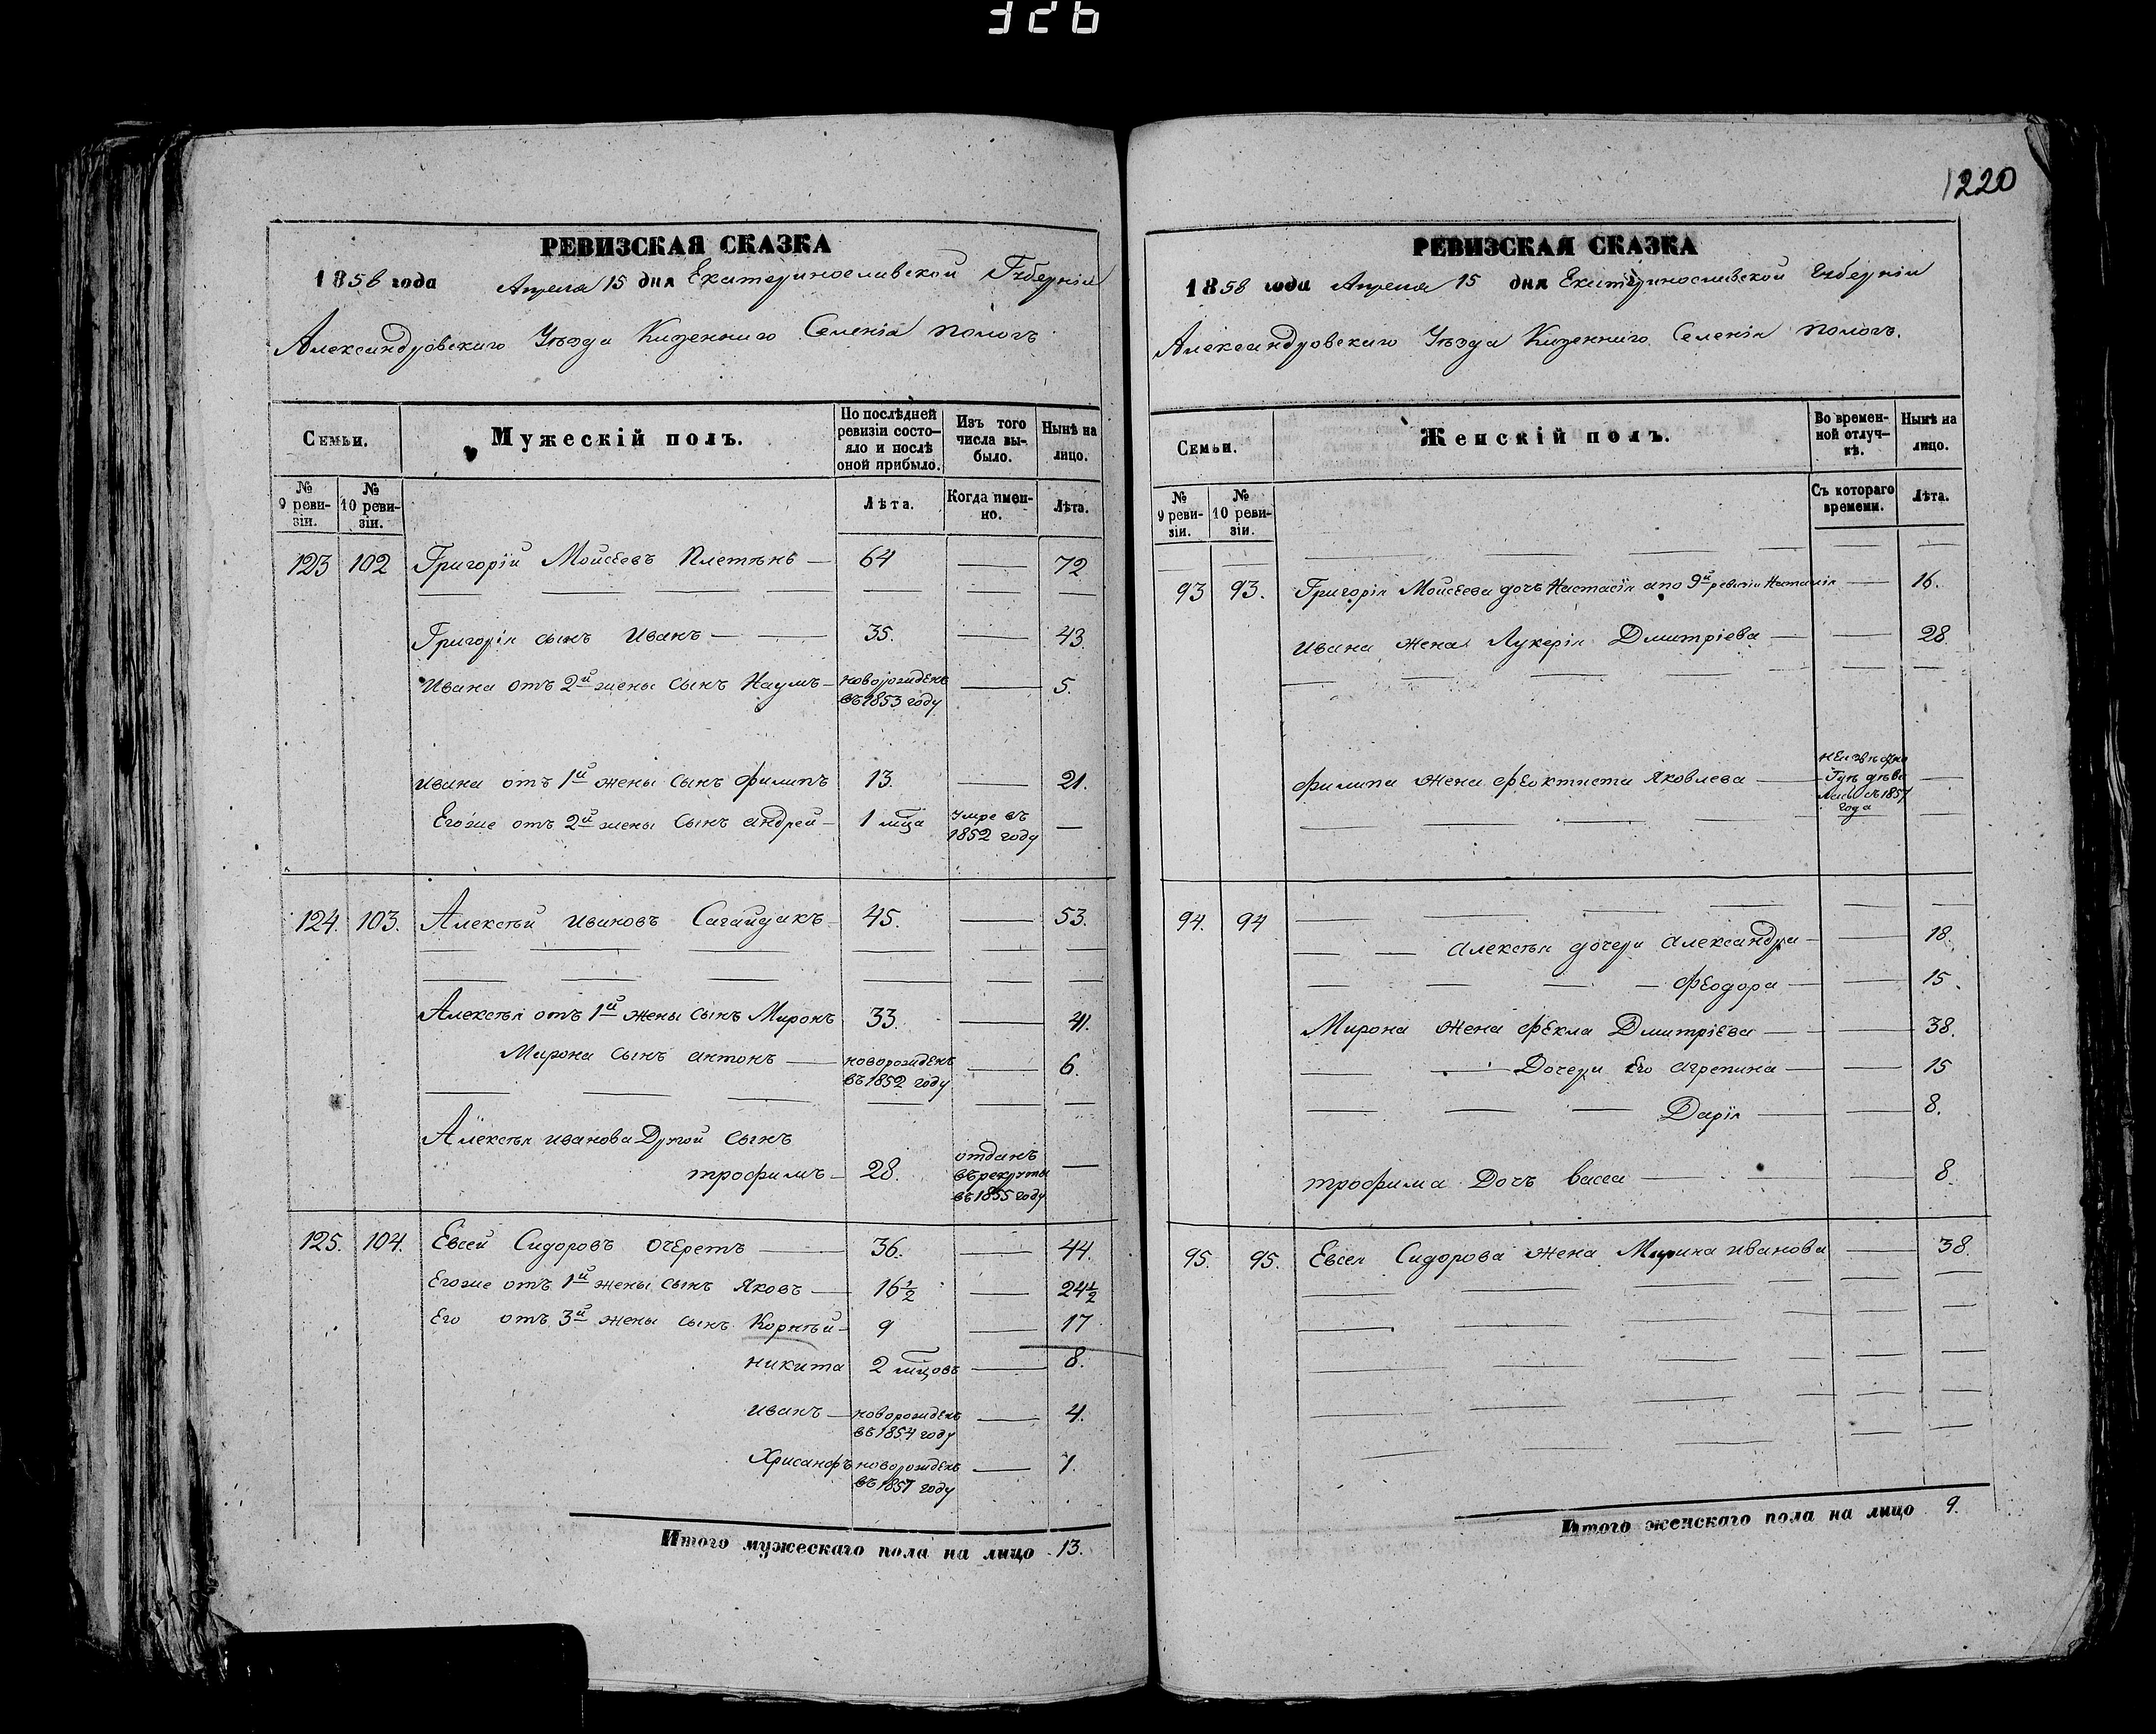 326
1220
РЕВИЗСКАЯ СКАЗКА
1858 года Апреля 15 дня Екатеринославской Губерніи
Александровскаго Уѣзда Казеннаго Селенія Пологъ
Семьи.
Мужескій полъ.
По послѣдней ревизіи состояло и послѣ оной прибыло.
Изъ того числа выбыло.
Нынѣ на лицо.
№ 9 ревизіи.
№ 10 ревизіи.
Лѣта.
Когда именно.
Лѣта.
123 102 Григорій Мойсеевъ Плетѣнь — 64 — 72
Григорія сынъ Иванъ — 35. — 43.
Ивана отъ 2й жены сынъ Наумъ — новорожденъ въ 1853 году — 5.
Ивана отъ 1й жены сынъ Филипъ 13. — 21.
Егоже отъ 2й жены сынъ Андрей — 1 мца умре въ 1852 году —
124. 103. Алексѣй Ивановъ Сагайдакъ 45. — 53.
Алексѣя отъ 1й жены сынъ Миронъ 33. — 41.
Мирона сынъ Антонъ — новорожденъ въ 1852 году — 6.
Алексѣя Иванова Другой сынъ
трофимъ — 28. отданъ въ рекруты въ 1855 году —
125. 104. Евсей Сидоровъ Очеретъ — 36. — 44.
Егоже отъ 1й жены сынъ Яковъ — 16 1/2 — 24 1/2
Его отъ 3й жены сынъ Корнѣй — 9 — 17
Никита 2 мцовъ — 8.
Иванъ — новорожденъ въ 1854 году — 4.
Хрисанфъ новорожденъ въ 1857 году — 1.
Итого мужескаго пола на лицо 13.
РЕВИЗСКАЯ СКАЗКА
1858 года Апреля 15 дня Екатеринославской Губерніи
Александровскаго Уѣзда Казеннаго Селенія Пологъ.
Семьи.
Женскій полъ.
Во временной отлучкѣ.
Нынѣ на лицо.
№ 9 ревизіи.
№ 10 ревизіи.
Съ котораго времени.
Лѣта.
93 93. Григорія Мойсеева дочь Настасія а по 9й ревизіи Наталія — 16.
Ивана жена Лукерія Дмитріева — 28
Филипа жена Феоктиста Яковлева — 1857 года —
94. 94 Алексѣя дочери Александра — 18.
Феодора — 15.
Мирона жена Фекла Дмитріева — 38.
Дочери Его Агрепина — 15
Дарія — 8.
трофима Дочь Васса — 8.
95. 95. Евсея Сидорова жена Марина Иванова — 38.
Итого женскаго пола на лицо 9.